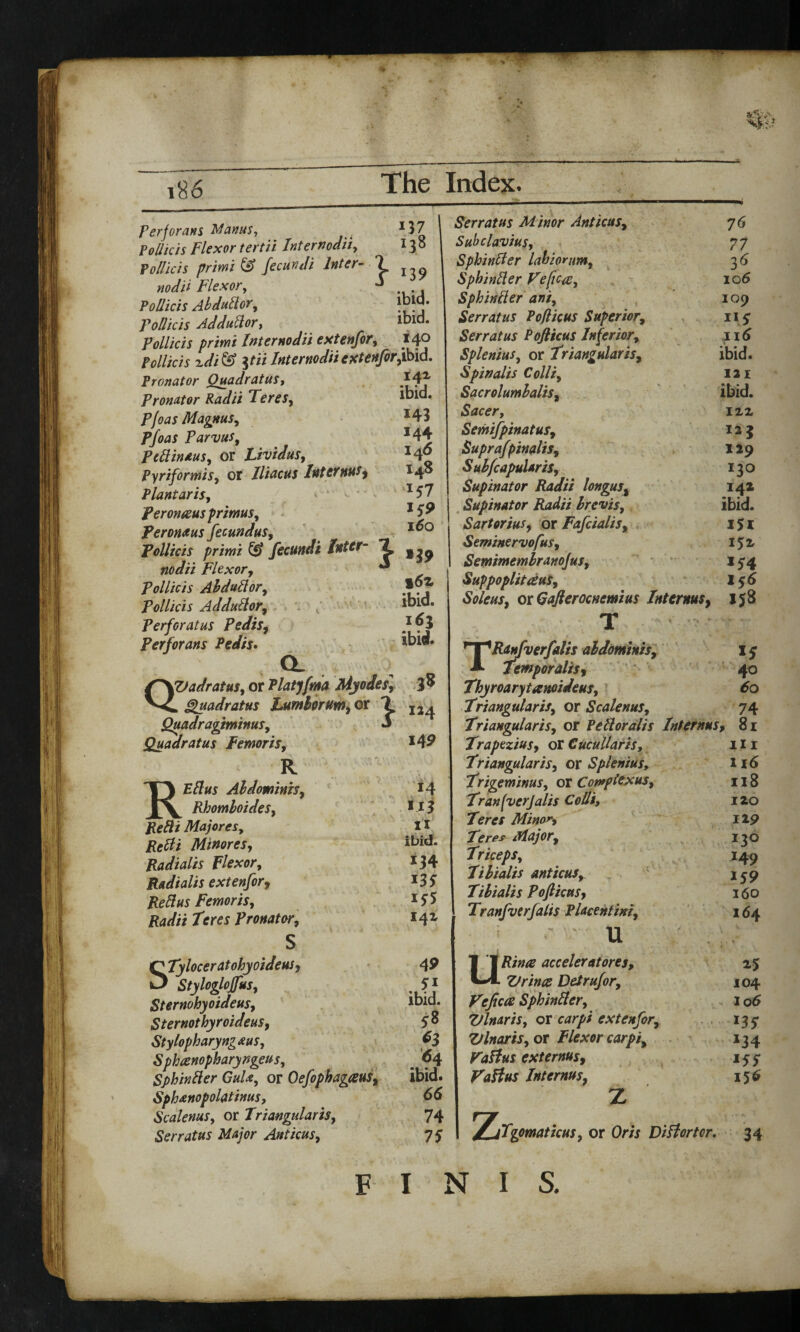 186 The Index.
Perforans Manus, 137
Pollicis Flexor tertii Internodii, 138
Pollicis primi & secundi Inter- } 139
nodii Flexor,
Pollicis Abductor, ibid.
Pollicis Adductor, ibid.
Pollicis primi Internodii extensor, 140
Pollicis 2di & 3tii Internodii extensor, ibid.
Pronator Quadratus, 142
Pronator Radii Teres, ibid.
Psoas Magnus, 143
Psoas Parvus, 144
Pectinæus, or Lividus, 146
Pyriformis, or Iliacus Internus, 148
Plantaris, 157
Peronæus primus, 159
Peronæus secundus, 160
Pollicis primi & secundi Inter- } 139
nodii Flexor,
Pollicis Abductor, 162
Pollicis Adductor, ibid.
Perforatus Pedis, 163
Perforans Pedis. ibid.
Q
QUadratus, or Platysma Myodes, 38
Quadratus Lumborum, or } 124
Quadragiminus,
Quadratus Femoris, 149
R
REctus Abdominis, 14
Rhomboides, 113
Recti Majores, 11
Recti Minores, ibid.
Radialis Flexor, 134
Radialis extensor, 135
Rectus Femoris, 155
Radii Teres Pronator, 142
S
STyloceratohyoideus, 49
Styloglossus, 51
Sternohyoideus, ibid.
Sternothyroideus, 58
Stylopharyngæus, 63
Sphænopharyngeus, 64
Sphincter Gulæ, or Oesophagæus, ibid.
Sphænopolatinus, 66
Scalenus, or Triangularis, 74
Serratus Major Anticus, 75
Serratus Minor Anticus, 76
Subclavius, 77
Sphincter labiorum, 36
Sphincter Vesicæ, 106
Sphincter ani, 109
Serratus Posticus Superior, 115
Serratus Posticus Inferior, 116
Splenius, or Triangularis, ibid.
Spinalis Colli, 121
Sacrolumbalis, ibid.
Sacer, 122
Semispinatus, 123
Supraspinalis, 129
Subscapularis, 130
Supinator Radii longus, 142
Supinator Radii brevis, ibid.
Sartorius, or Fascialis, 151
Seminervosus, 152
Semimembranosus, 154
Suppoplitæus, 156
Soleus, or Gasterocnemius Internus, 158
T
TRansversalis abdominis, 15
Temporalis, 40
Thyroarytænoideus, 60
Triangularis, or Scalenus, 74
Triangularis, or Pectoralis Internus, 81
Trapezius, or Cucullaris, 111
Triangularis, or Splenius, 116
Trigeminus, or Complexus, 118
Transversalis Colli, 120
Teres Minor, 129
Teres Major, 130
Triceps, 149
Tibialis anticus, 159
Tibialis Posticus, 160
Transversalis Placentini, 164
U
URinæ acceleratores, 25
Urinæ Detrusor, 104
Vesicæ Sphincter, 106
Ulnaris, or carpi extensor, 135
Ulnaris, or Flexor carpi, 134
Vastus externus, 155
Vastus Internus, 156
Z
ZYgomaticus, or Oris Distortor. 34
F I N I S.